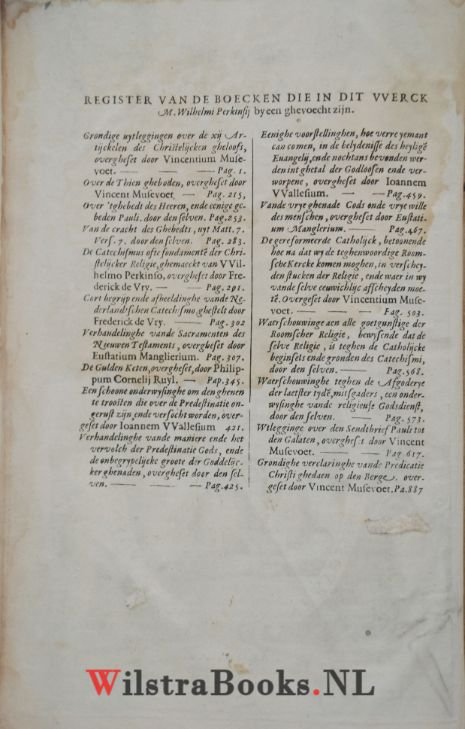 REGISTER VAN DE BOECKEN DIE IN DIT VVERCK
M. Wilhelmi Perkinsij by een ghevoecht zijn.
Grondige uytleggingen over de xij Ar-
tijckelen des Christelijcken gheloofs,
overgheset door Vincentium Muse-
voet. — Pag. 1.
Over de Thien gheboden, overgheset door
Vincent Musevoet. — Pag. 215,
Over 'tghebedt des Heeren, ende eenige ge-
beden Pauli. door den selven. Pag. 253.
Van de cracht des Ghebedts, uyt Matt. 7.
Vers. 7. door den selven. Pag. 283.
De Catechismus ofte fondamente der Chri-
stelijcker Religie, ghemaeckt van VVil-
helmo Perkinso, overgheset door Fre-
derick de Vry. — Pag. 291.
Cort begrijp ende afbeeldinghe vande Ne-
derlandtschen Catechismo ghestelt door
Frederick de Vry — Pag. 302
Verhandelinghe vande Sacramenten des
Nieuwen Testaments, overgheset door
Eustatium Manglierium. Pag. 307.
De Gulden Keten, overgheset, door Philip-
pum Cornelij Ruyl. — Pap. 345.
Een schoone onderwijsinghe om den ghenen
te troosten die over de Predestinatie on-
gerust zijn, ende versocht worden, over-
geset door Ioannem VVallesium 421.
Verhandelinghe vande maniere ende het
vervolch der Predestinatie Gods, ende
de onbegrypelijcke groote der Goddelijc-
ker ghenaden, overgheset door den sel-
ven. — — Pag. 425.
Eenighe voorstellinghen, hoe verre yemant
can comen, in de belydenisse des heylige
Euangelij, ende nochtans bevonden wer-
den int ghetal der Godloosen ende ver-
worpene, overgheset door Ioannem
VVallesium. — Pag. 459.
Vande vrye ghenade Gods ende vrye wille
des menschen, overgheset door Eustati-
um Manglerium. — Pag. 467.
De gereformeerde Catholijck, betoonende
hoe na dat wy de teghenwoordige Room-
sche Kercke komen moghen, in verschey-
den stucken der Religie, ende waer in wy
vande selve eeuwichlijc affscheyden moe-
tē. Overgeset door Vincentium Muse-
voet. — — Pag. 503.
Waerschouwinge aen alle goetgunstige der
Roomscher Religie, bewysende dat de
selve Religie, is teghen de Catholijcke
beginsels ende gronden des Catechismi,
door den selven. — Pag. 568.
Waerschouwinghe teghen de Afgoderye
der laetster tydē, mitsgaders, een onder-
wysinghe vande religieuse Godsdienst,
door den selven. — Pag. 573.
Wtlegginge over den Sendtbrief Pauls tot
den Galaten, overghes.t door Vincent
Musevoet. — — Pag 617.
Grondighe verclaringhe vande Predicatie
Christi ghedaen op den Berge. over-
geset door Vincent Musevoet. Pa. 887
WilstraBooks.NL